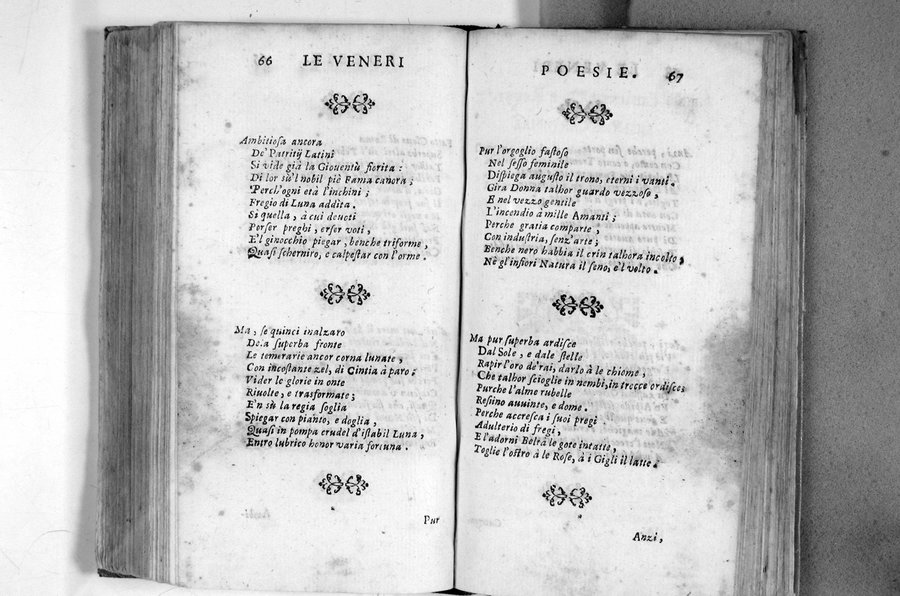 66 LE VENERI
Ambitiosa ancora
De' Patritij Latini
Si vide già la Gioventù fiorita:
Di lor sù'l nobil piè Fama canora;
Perch'ogni età l'inchini;
Fregio di Luna addita.
Si quella, à cui devoti
Porser preghi, erser voti,
E'l ginocchio piegar, benche triforme,
Quasi scherniro, e calpestar con l'orme.
Ma, se quinci inalzaro
Dela superba fronte
Le temerarie ancor corna lunate,
Con incostante zel, di Cintia à paro;
Vider le glorie in onte
Rivolte, e trasformate;
E'n sù la regia soglia
Spiegar con pianto, e doglia,
Quasi in pompa crudel d'istabil Luna,
Entro lubrico honor varia fortuna.
Pur
POESIE. 67
Pur l'orgoglio fastoso
Nel sesso feminile
Dispiega augusto il trono, eterni i vanti.
Gira Donna talhor guardo vezzoso,
E nel vezzo gentile
L'incendio à mille Amanti;
Perche gratia comparte,
Con industria, senz'arte;
Benche nero habbia il crin talhora incolto,
Nè gl'infiori Natura il seno, e'l volto.
Ma pur superba ardisce
Dal Sole, e dale stelle
Rapir l'oro de'rai, darlo à le chiome,
Che talhor scioglie in nembi, in trecce ordisce;
Purche l'alme rubelle
Restino avuinte, e dome.
Perche accresca i suoi pregi
Adulterio di fregi,
E l'adorni Beltà le gote intatte,
Toglie l'ostro à le Rose, à i Gigli il latte.
Anzi,